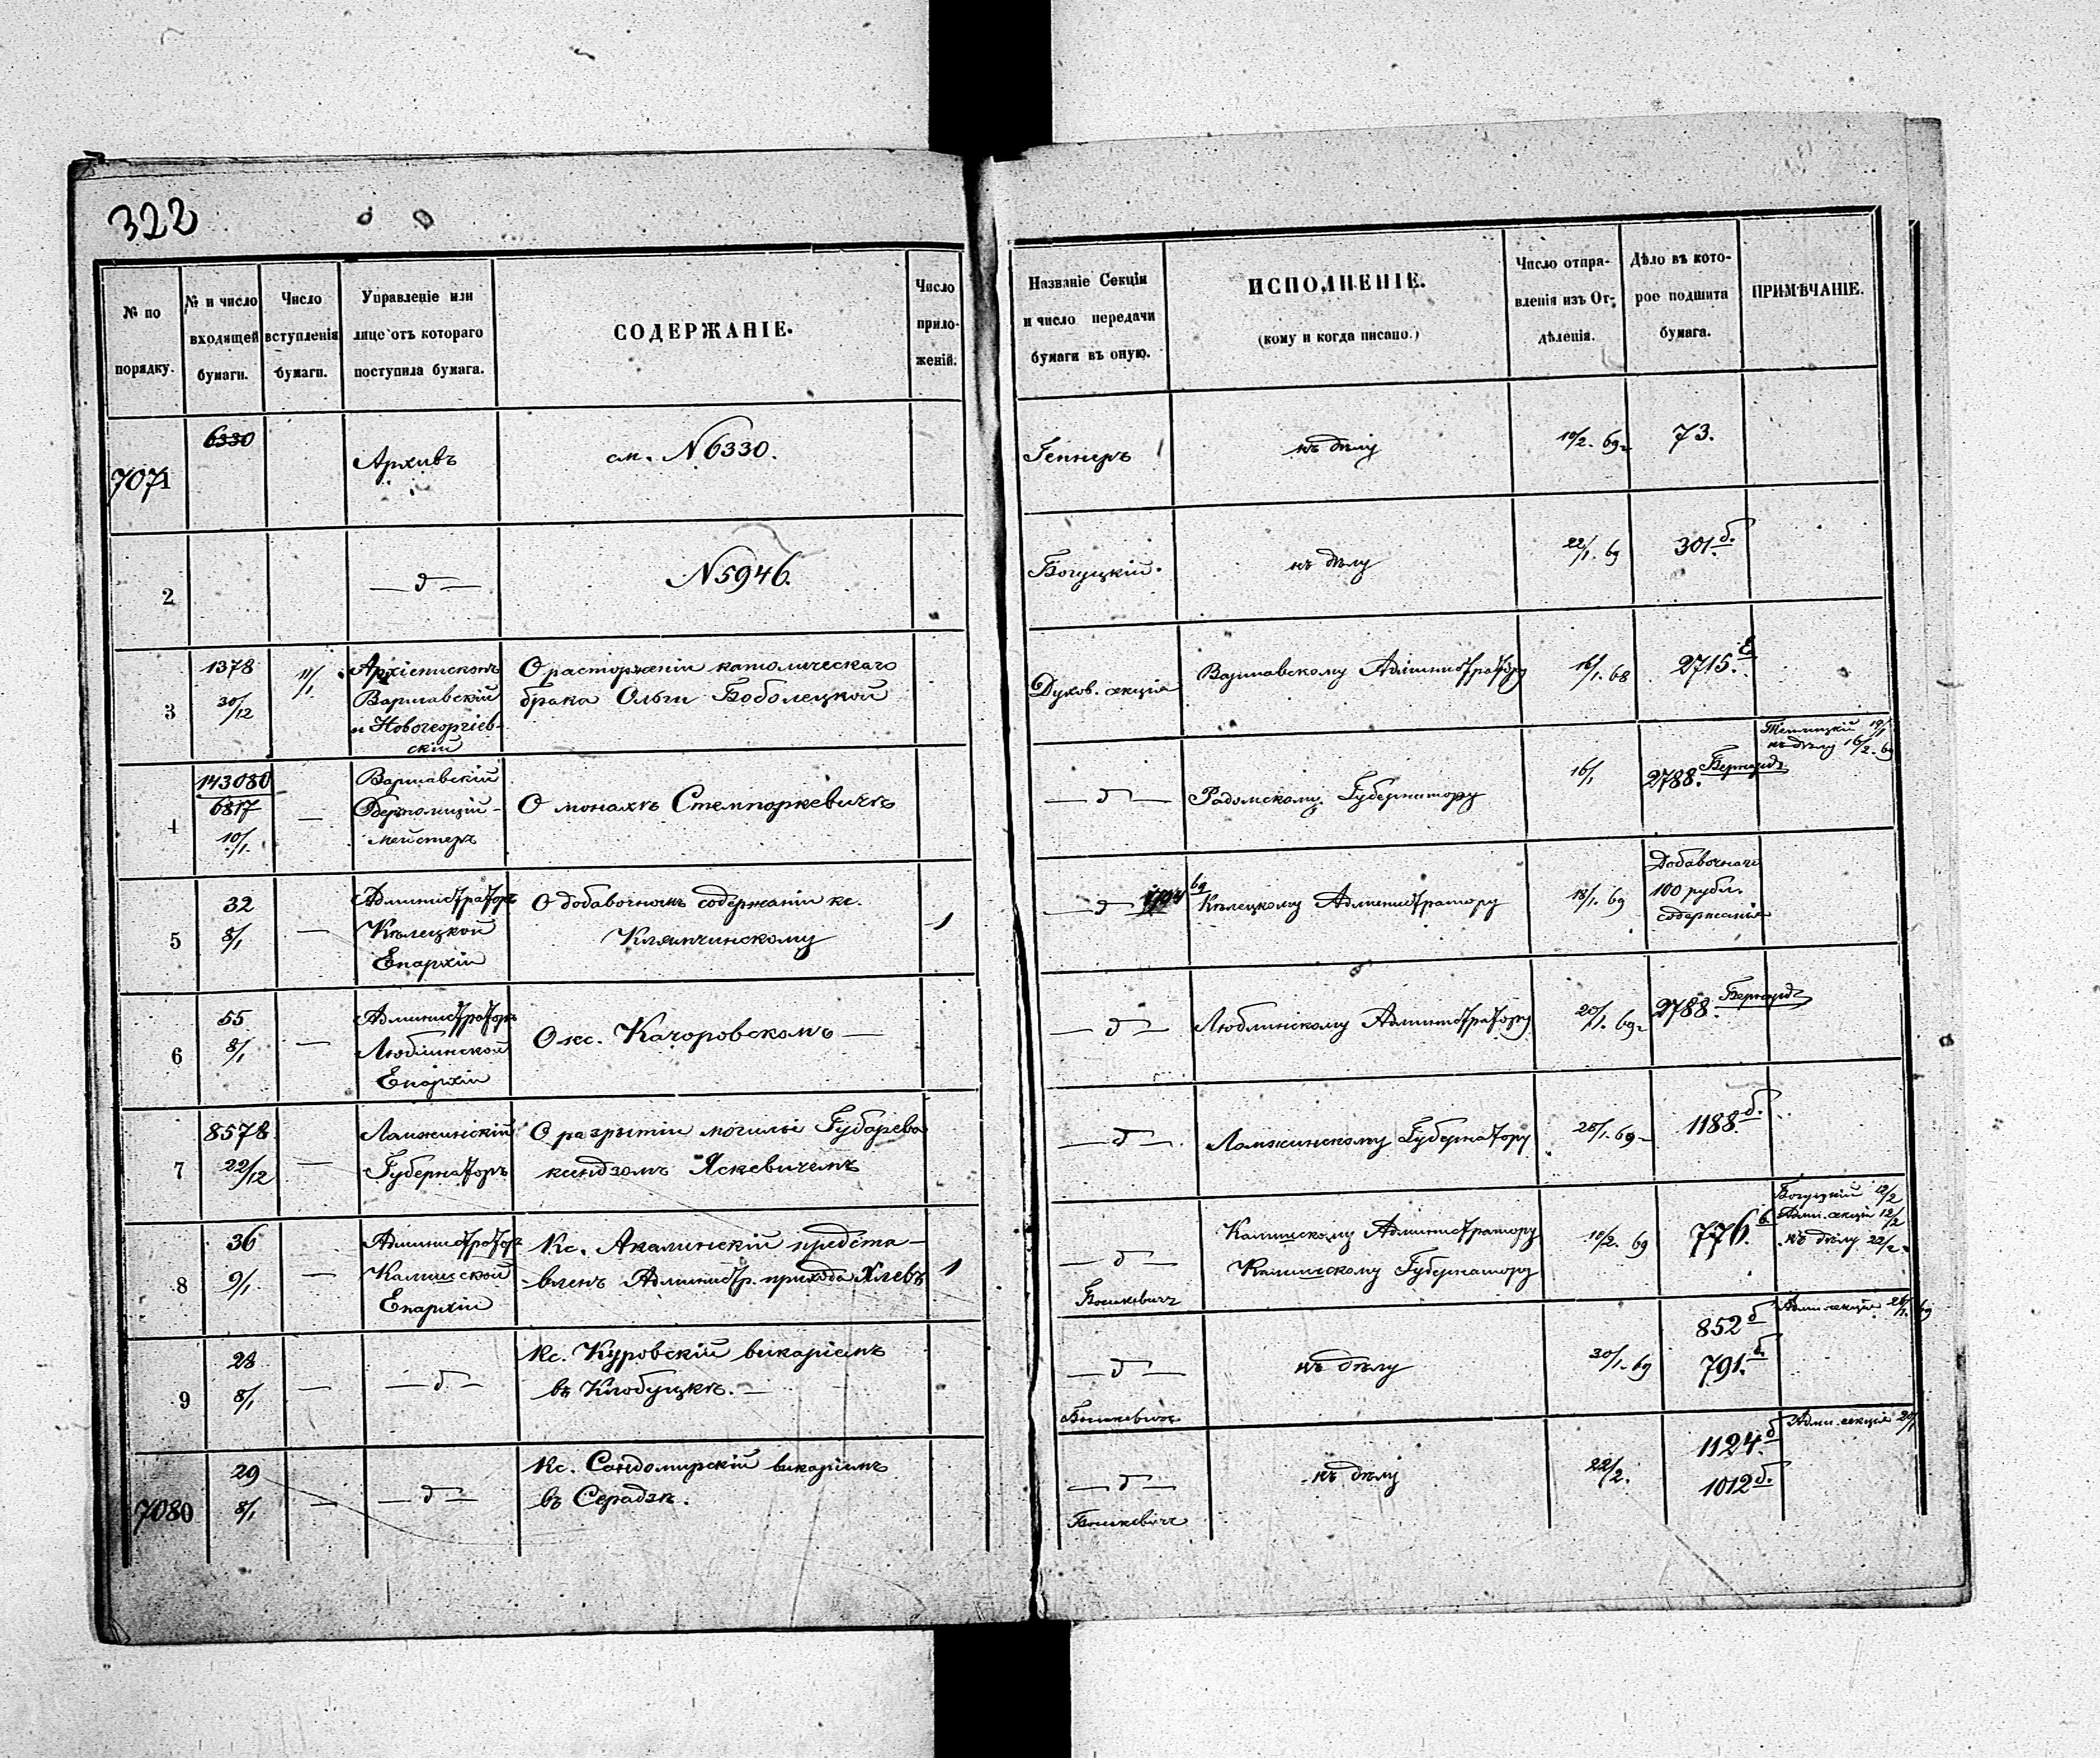 322
№ по порядку.
№ и число входящей бумаги.
Число вступленія бумаги.
Управленіе или лице отъ котораго поступила бумага.
СОДЕРЖАНІЕ.
Число приложеній.
Названіе Секціи и число передачи бумаги въ оную.
ИСПОЛНЕНІЕ.
(кому и когда писано.)
Число отправленія изъ Отдѣленія.
Дѣло въ которое подшита бумага.
ПРИМѢЧАНІЕ.
7071
6330
Архивъ
см. N 6330.
Геннеръ
къ дѣлу
10/2. 69
73.
2
— д —
N 5946.
Богуцкій.
къ дѣлу
22/1. 69
301 б.
3
1378
30/12
11/1
Архіепископъ
Варшавскій
и Новогеоргіев-
скій
О расторженіи католическаго
брака Ольги Боболецкой
Духов. секція
Варшавскому Администратору
16/1. 68
2715.
4
143080
6817
10/1.
—
Варшавскій
Оберполицій-
мейстеръ
О монахѣ Стемпоркевичѣ
— д —
Радомскому Губернатору
16/1
2788. Бернард
къ дѣлу 16/2. 69
5
32
8/1
—
Администраторъ
Кѣлецкой
Епархіи
О добавочномъ содержаніи кс.
1
— д —
69
Кѣлецкому Администратору
18/1. 69
Добавочнаго
100 рубл.
содержанія
6
55
8/1
—
Администраторъ
Люблинской
Епархіи
О кс. Качоровскомъ —
— д —
Люблинскому Администратору
20/1. 69
2788. Бернард
7
8578
22/12
—
Ломжинскій
Губернаторъ
О разрытіи могилы Губарева
ксендзомъ Яскевичемъ
— д —
Ломжинскому Губернатору
20/1. 69
1188 б.
8
36
9/1
—
Администраторъ
Калишской
Епархіи
Кс. Акалинскій предста-
вленъ Администр. прихода Хлевъ
1
— д —
Калишскому Администратору
Калишскому Губернатору
10/2. 69
776. б
Богуцкій 12/2
Адми. секція 12/2
къ дѣлу 22/2
Бошкевичъ
9
28
8/1
—
— д —
Кс. Куровскій викаріемъ
въ Клобуцкѣ. —
— д —
къ дѣлу
30/1. 69
852 б
791. б
Адми. секція 69
Бошкевичъ
7080
29
8/1
—
— д —
Кс. Сандомирскій викаріемъ
въ Серадзѣ.
— д —
къ дѣлу
22/2.
1124. б
1012 б.
Адми. секція
Бошкевичъ